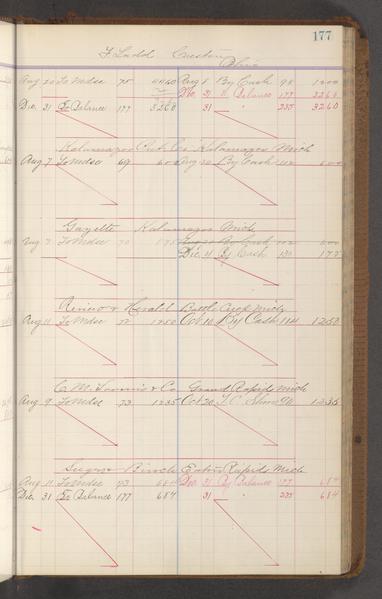 177
F Ladd Creston Ohio
Aug 20 To Mdse 75 4460 Aug 1 By Cash 98 1200
Dec 31 By Balance 177 3260
Dec. 31 To Balance 177 3260 31 " 235 3260
Kalamazoo Pub Co Kalamazoo Mich
Aug 7 To Mdse 69 600 Aug By Cash 600
Gazette Kalamazoo Mich
Aug 7 To Mdse 70 175
Dec. 11 By Cash 130 175
Herald Battle Creek Mich
Aug 11 To Mdse 72 1250 Oct 10 By Cash 114 1250
C. M. & Co Grand Rapids Mich
Aug 9 To Mdse 73 1235 Oct 20 1235
Birch Eaton Rapids Mich
Aug 11 To Mdse 73 684 Dec. 31 By Balance 177 684
Dec. 31 To Balance 177 684 31 " 235 684